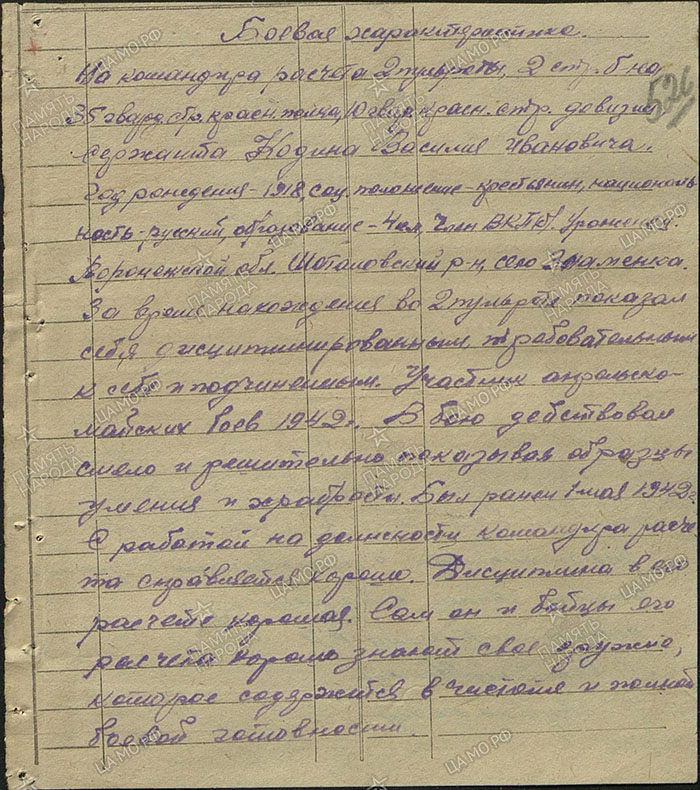 Боевая характеристика.
На командира расчета 2 пульроты, 2 стр. б-на
35 гвард. стр. красн. полка, 10 гвар. красн. стр. девизии
сержанта Кодина Василия Ивановича.
Год рождения - 1918, соц. положение - крестьянин, националь-
ность - русский, образование - 4 кл. Член ВКП(б). Уроженец
Воронежской обл. Шаталовский р-н, село Знаменка.
За время нахождения во 2 пульроте показал
себя дисциплинированным, требовательным
к себе и подчиненным. Участник апрельско-
майских боев 1942 г. В бою действовал
смело и решительно показывая образцы
умения и храбрости. Был ранен 1 мая 1942 г.
С работой на должности командира расче-
та справляется хорошо. Дисциплина в его
расчете хорошая. Сам он и бойцы его
расчета хорошо знают свое оружие,
которое содержится в чистоте и полной
боевой готовности.